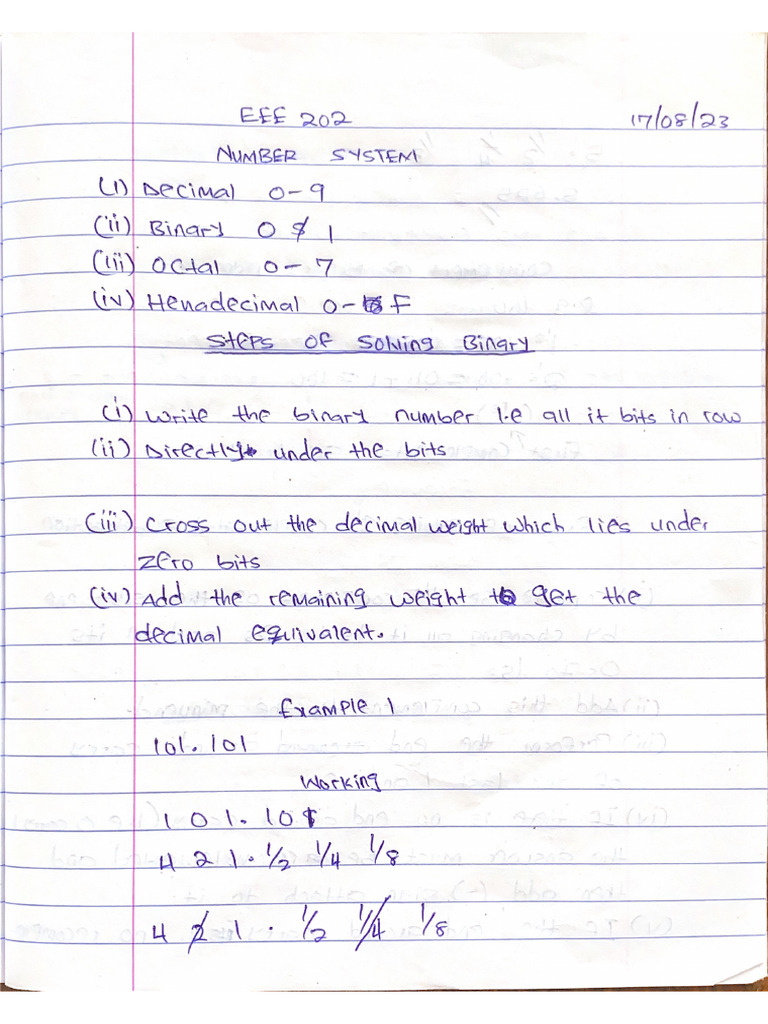 EEE 202 17/08/23
NUMBER SYSTEM
(i) Decimal 0-9
(ii) Binary 0 $ 1
(iii) Octal 0-7
(iv) Henadecimal 0-F
Steps of Solving Binary
(i) Write the binary number i.e all it bits in row
(ii) Directly under the bits
(iii) Cross out the decimal weight which lies under
zero bits
(iv) Add the remaining weight to get the
decimal equivalent.
Example 1
101.101
Working
1 0 1 . 1 0 1
4 2 1 . 1/2 1/4 1/8
4 2 1 . 1/2 1/4 1/8